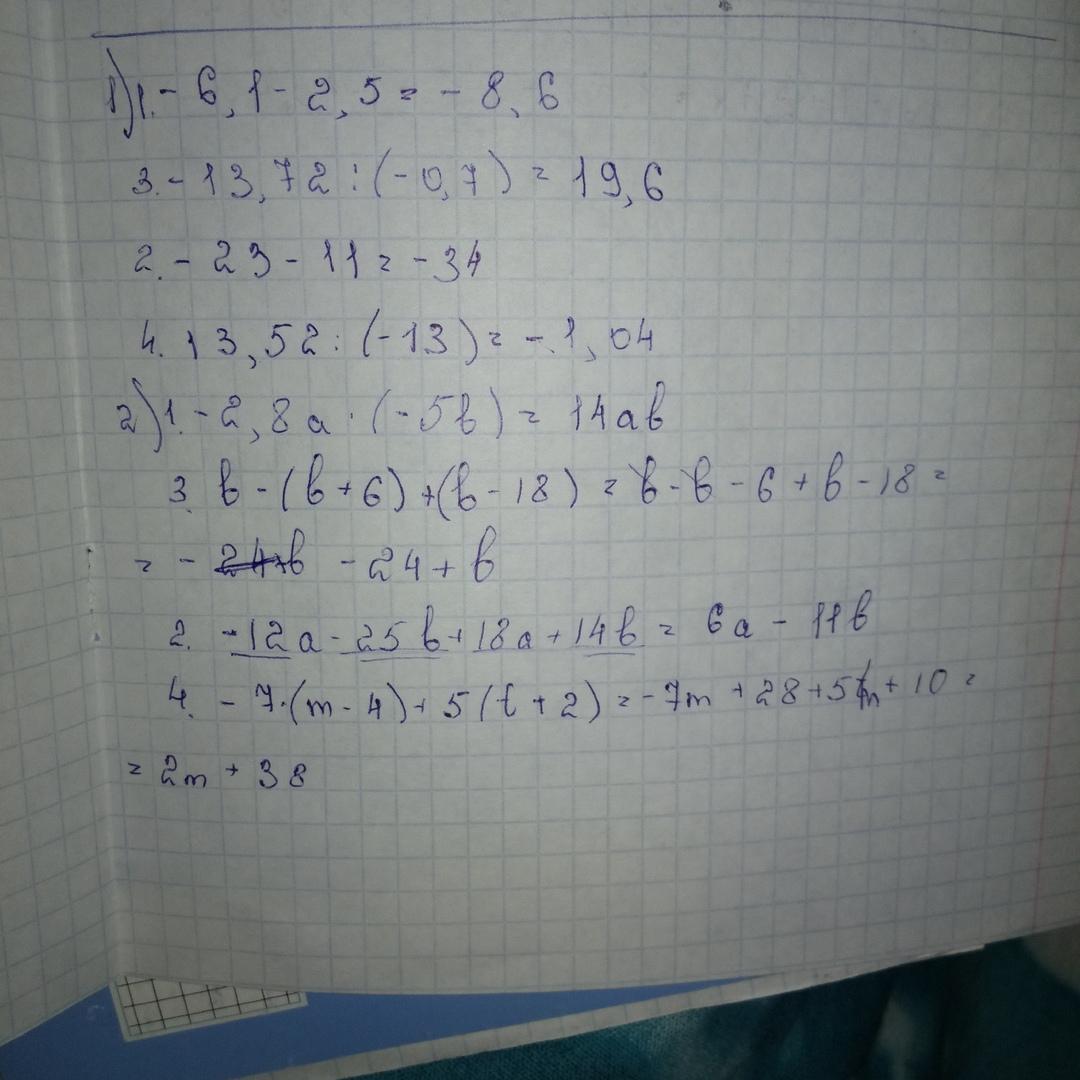 1) 1. - 6,1 - 2,5 = - 8,6
3. - 13,72 : (-0,7) = 19,6
2. - 23 - 11 = - 34
4. 13,52 : (-13) = - 1,04
2) 1. - 2,8a · (-5b) = 14ab
3. b - (b + 6) + (b - 18) = b - b - 6 + b - 18 =
= - 24+b - 24 + b
2. - 12a - 25b + 18a + 14b = 6a - 11b
4. - 7·(m - 4) + 5(t + 2) = - 7m + 28 + 5m + 10 =
= 2m + 38